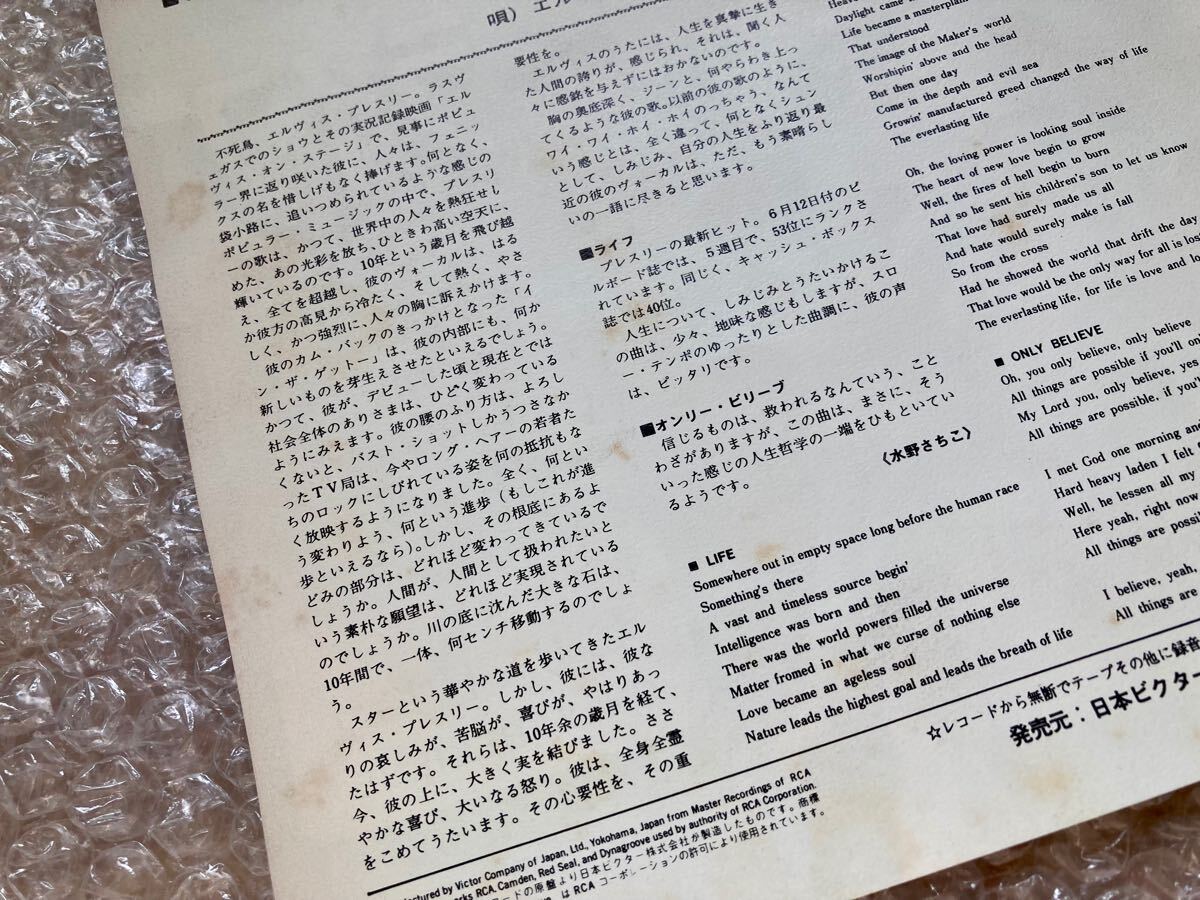 唄）エル
不死鳥、エルヴィス・プレスリー。ラスヴ
ェガスでのショウとその実況記録映画「エル
ヴィス・オン・ステージ」で、見事にポピュ
ラー界に返り咲いた彼に、人々は、フェニッ
クスの名を惜しげもなく捧げます。何となく、
袋小路に、追いつめられているような感じの
ポピュラー・ミュージックの中で、プレスリ
ーの歌は、かつて、世界中の人々を熱狂せし
めた、あの光彩を放ち、ひときわ高い空天に、
輝いているのです。10年という歳月を飛び越
え、全てを超越し、彼のヴォーカルは、はる
か彼方の高見から冷たく、そして熱く、やさ
しく、かつ強烈に、人々の胸に訴えかけます。
彼のカム・バックのきっかけとなった「イ
ン・ザ・ゲットー」は、彼の内部にも、何か
新しいものを芽生えさせたといえるでしょう。
かつて、彼が、デビューした頃と現在とでは
社会全体のありさまは、ひどく変わっている
ようにみえます。彼の腰のふり方は、よろし
くないと、バスト・ショットしかうつさなか
ったTV局は、今やロング・ヘアーの若者た
ちのロックにしびれている姿を何の抵抗もな
く放映するようになりました。全く、何とい
う変わりよう、何という進歩（もしこれが進
歩といえるなら）。しかし、その根底にあるよ
どみの部分は、どれほど変わってきているで
しょうか。人間が、人間として扱われたいと
いう素朴な願望は、どれほど実現されている
のでしょうか。川の底に沈んだ大きな石は、
10年間で、一体、何センチ移動するのでしょ
う。
スターという華やかな道を歩いてきたエル
ヴィス・プレスリー。しかし、彼には、彼な
りの哀しみが、苦脳が、喜びが、やはりあっ
たはずです。それらは、10年余の歳月を経て、
今、彼の上に、大きく実を結びました。ささ
やかな喜び、大いなる怒り。彼は、全身全霊
をこめてうたいます。その心要性を、その重
要性を。
エルヴィスのうたには、人生を真摯に生き
た人間の誇りが、感じられ、それは、聞く人
々に感銘を与えずにはおかないのです。
胸の奥底深く、ジーンと、何やらわき上っ
てくるような彼の歌。以前の彼の歌のように、
ワイ・ワイ・ホイ・ホイのっちゃう、なんて
いう感じとは、全く違って、何となくシュン
として、しみじみ、自分の人生をふり返り最
近の彼のヴォーカルは、ただ、もう素晴らし
いの一語に尽きると思います。
■ライフ
プレスリーの最新ヒット。6月12日付のビ
ルボード誌では、5週目で、53位にランクさ
れています。同じく、キャッシュ・ボックス
誌では40位。
人生について、しみじみとうたいかけるこ
の曲は、少々、地味な感じもしますが、スロ
ー・テンポのゆったりとした曲調に、彼の声
は、ピッタリです。
■オンリー・ビリーブ
信じるものは、救われるなんていう、こと
わざがありますが、この曲は、まさに、そう
いった感じの人生哲学の一端をひもといてい
るようです。
〈水野さちこ〉
■ LIFE
Somewhere out in empty space long before the human race
Something's there
A vast and timeless source begin'
Intelligence was born and then
There was the world powers filled the universe
Matter fromed in what we curse of nothing else
Love became an ageless soul
Nature leads the highest goal and leads the breath of life
Daylight came
Life became a masterplain
That understood
The image of the Maker's world
Worshipin' above and the head
But then one day
Come in the depth and evil sea
Growin' manufactured greed changed the way of life
The everlasting life
Oh, the loving power is looking soul inside
The heart of new love begin to grow
Well, the fires of hell begin to burn
And so he sent his children's son to let us know
That love had surely made us all
And hate would surely make is fall
So from the cross
Had he showed the world that drift the day
That love would be the only way for all is los
The everlasting life, for life is love and lo
■ ONLY BELIEVE
Oh, you only believe, only believe
All things are possible if you'll onl
My Lord you, only believe, yes
All things are possible, if you'
I met God one morning and
Hard heavy laden I felt
Well, he lessen all my
Here yeah, right now
All things are possi
I believe, yeah,
All things are
☆レコードから無断でテープその他に録音
発売元：日本ビクター
factured by Victor Company of Japan, Ltd., Yokohama, Japan from Master Recordings of RCA
rks RCA, Camden, Red Seal, and Dynagroove used by authority of RCA Corporation.
ードの原盤より日本ビクター株式会社が製造したものです。商標
は RCA コーポレーションの許可により使用されています。